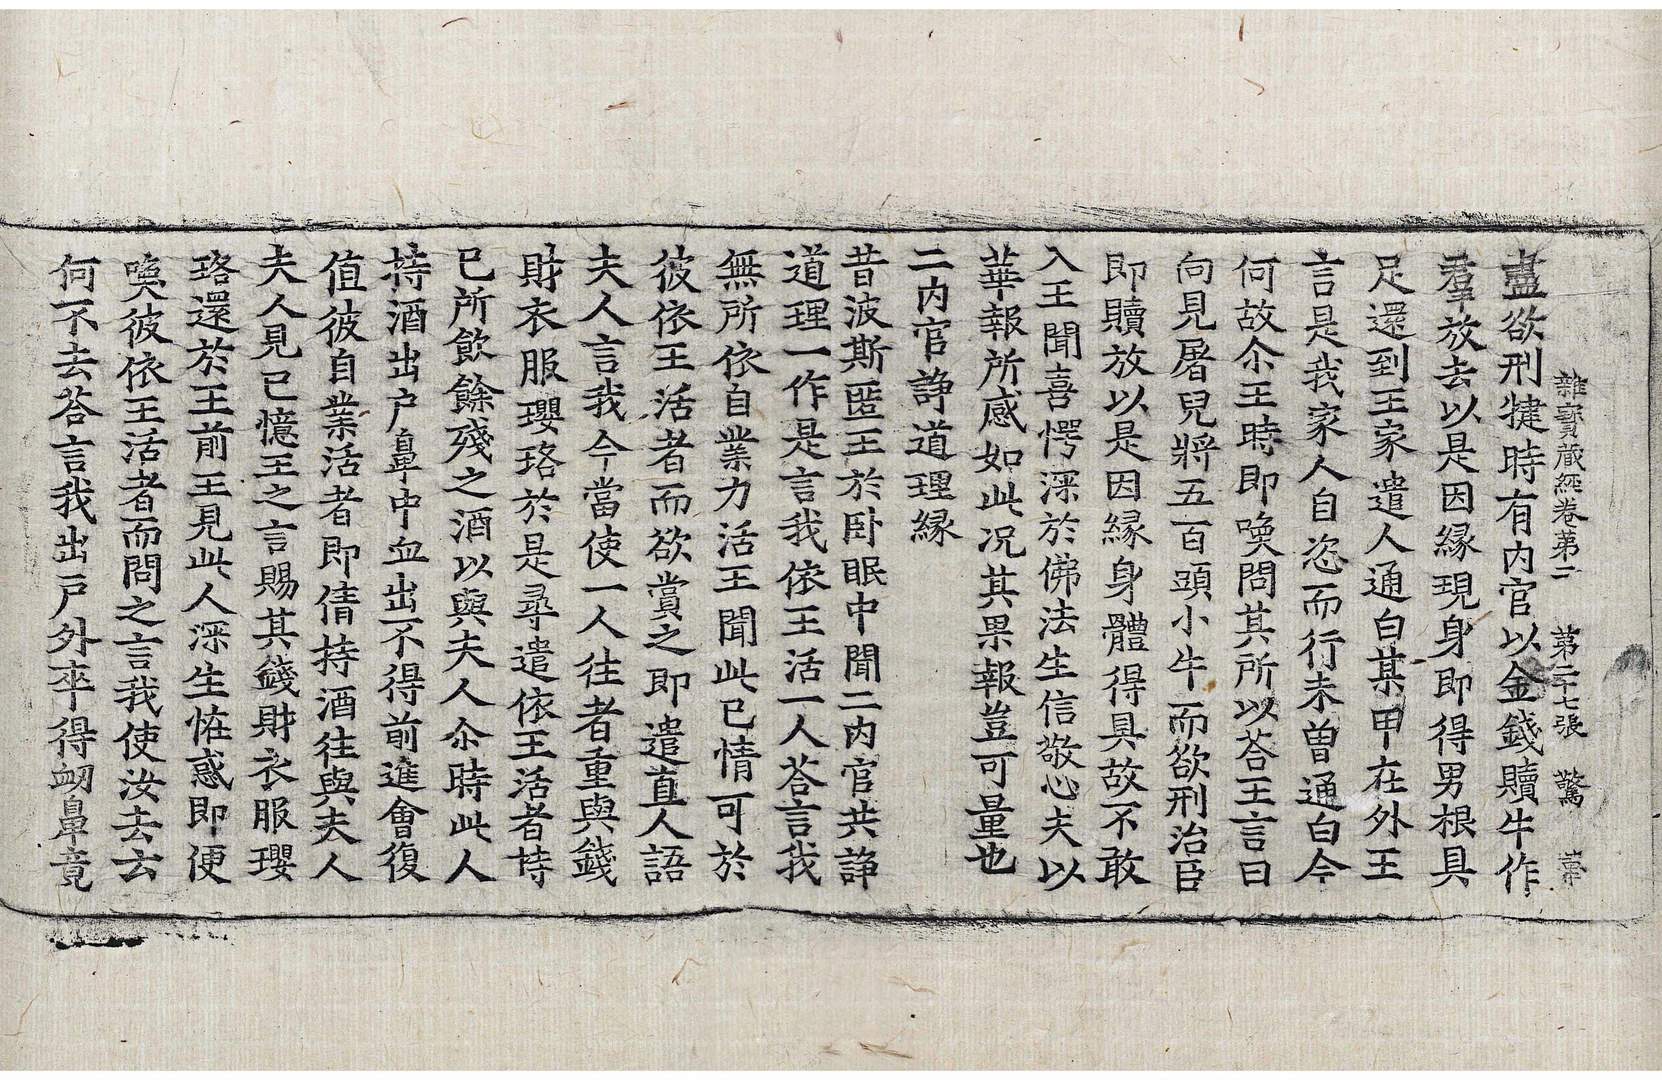 雜寶藏經卷第二 第二十七張 驚
盡欲刑犍時有內官以金錢贖牛作
羣放去以是因緣現身即得男根具
足還到王家遣人通白某甲在外王
言是我家人自恣而行未曾通白今
何故尒王時即喚問其所以荅王言曰
向見屠兒將五百頭小牛而欲刑治臣
即贖放以是因緣身體得具故不敢
入王聞喜愕深於佛法生信敬心夫以
華報所感如此况其果報豈可量也
二內官諍道理緣
昔波斯匿王於卧眠中聞二內官共諍
道理一作是言我依王活一人荅言我
無所依自業力活王聞此已情可於
彼依王活者而欲賞之即遣直人語
夫人言我今當使一人往者重與錢
財衣服瓔珞於是尋遣依王活者持
已所飲餘殘之酒以與夫人尒時此人
持酒出户鼻中血出不得前進會復
值彼自業活者即倩持酒往與夫人
夫人見已憶王之言賜其錢財衣服瓔
珞還於王前王見此人深生恠惑即便
喚彼依王活者而問之言我使汝去云
何不去荅言我出户外卒得衂鼻竟